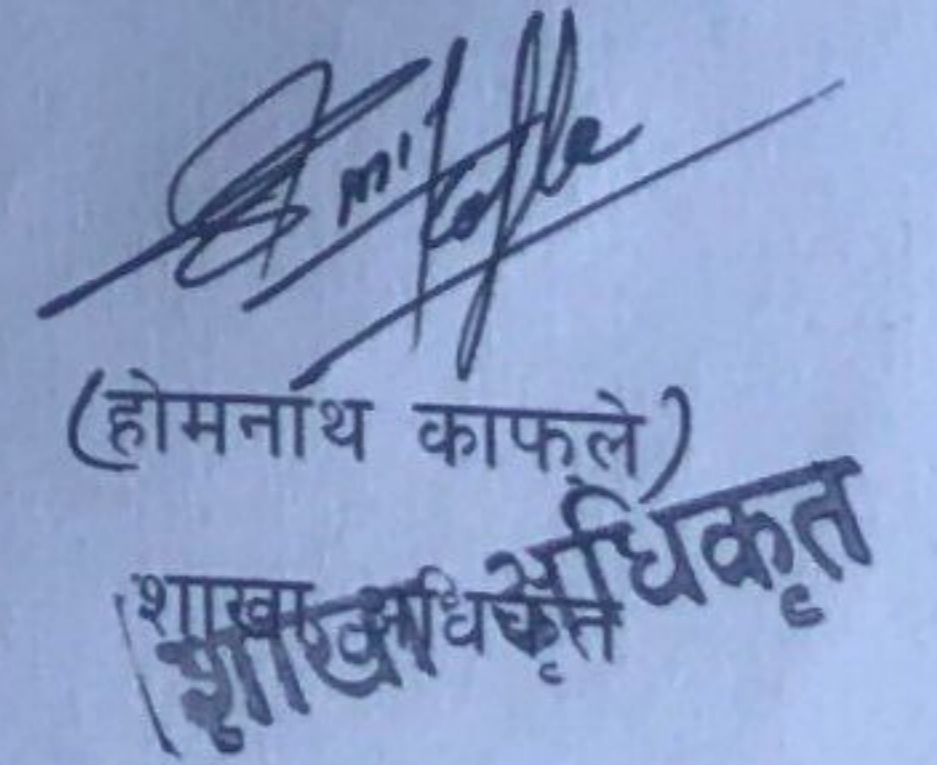 (होमनाथ काफ्ले)
शाखा अधिकृत
शाखा अधिकृत